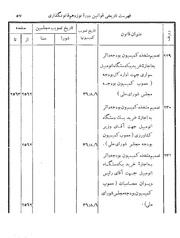 فهرست تاریخی قوانین دورهٔ نوزدهم قانونگذاری
۵۷
ردیف
عنوان قانون
تاریخ تصویب کمیسیونها
تاریخ تصویب مجلسین
شورا
سنا
صفحه
از
تا
۲۲۹
تصمیم متخذه کمیسیون بودجه دائر
به اجازهٔ خرید یکدستگاه اتومبیل
سواری جهت اداره کل بودجه
( مصوب کمیسیون بودجه
مجلس شورای ملی )
۲۳۰
تصمیم متخذه کمیسیون بودجه دائر
به اجازهٔ خرید یکدستگاه
اتومبیل جهت آقای وزیر
کشاورزی ( مصوب کمیسیون
بودجه مجلس شورای ملی )
۲۳۱
تصمیم متخذه کمیسیون بودجه دائر
به اجازه خرید یکدستگاه
اتومبیل جهت آقای رئیس
دیوان محاسبات ( مصوب
کمیسیون بودجه مجلس
شورای ملی )